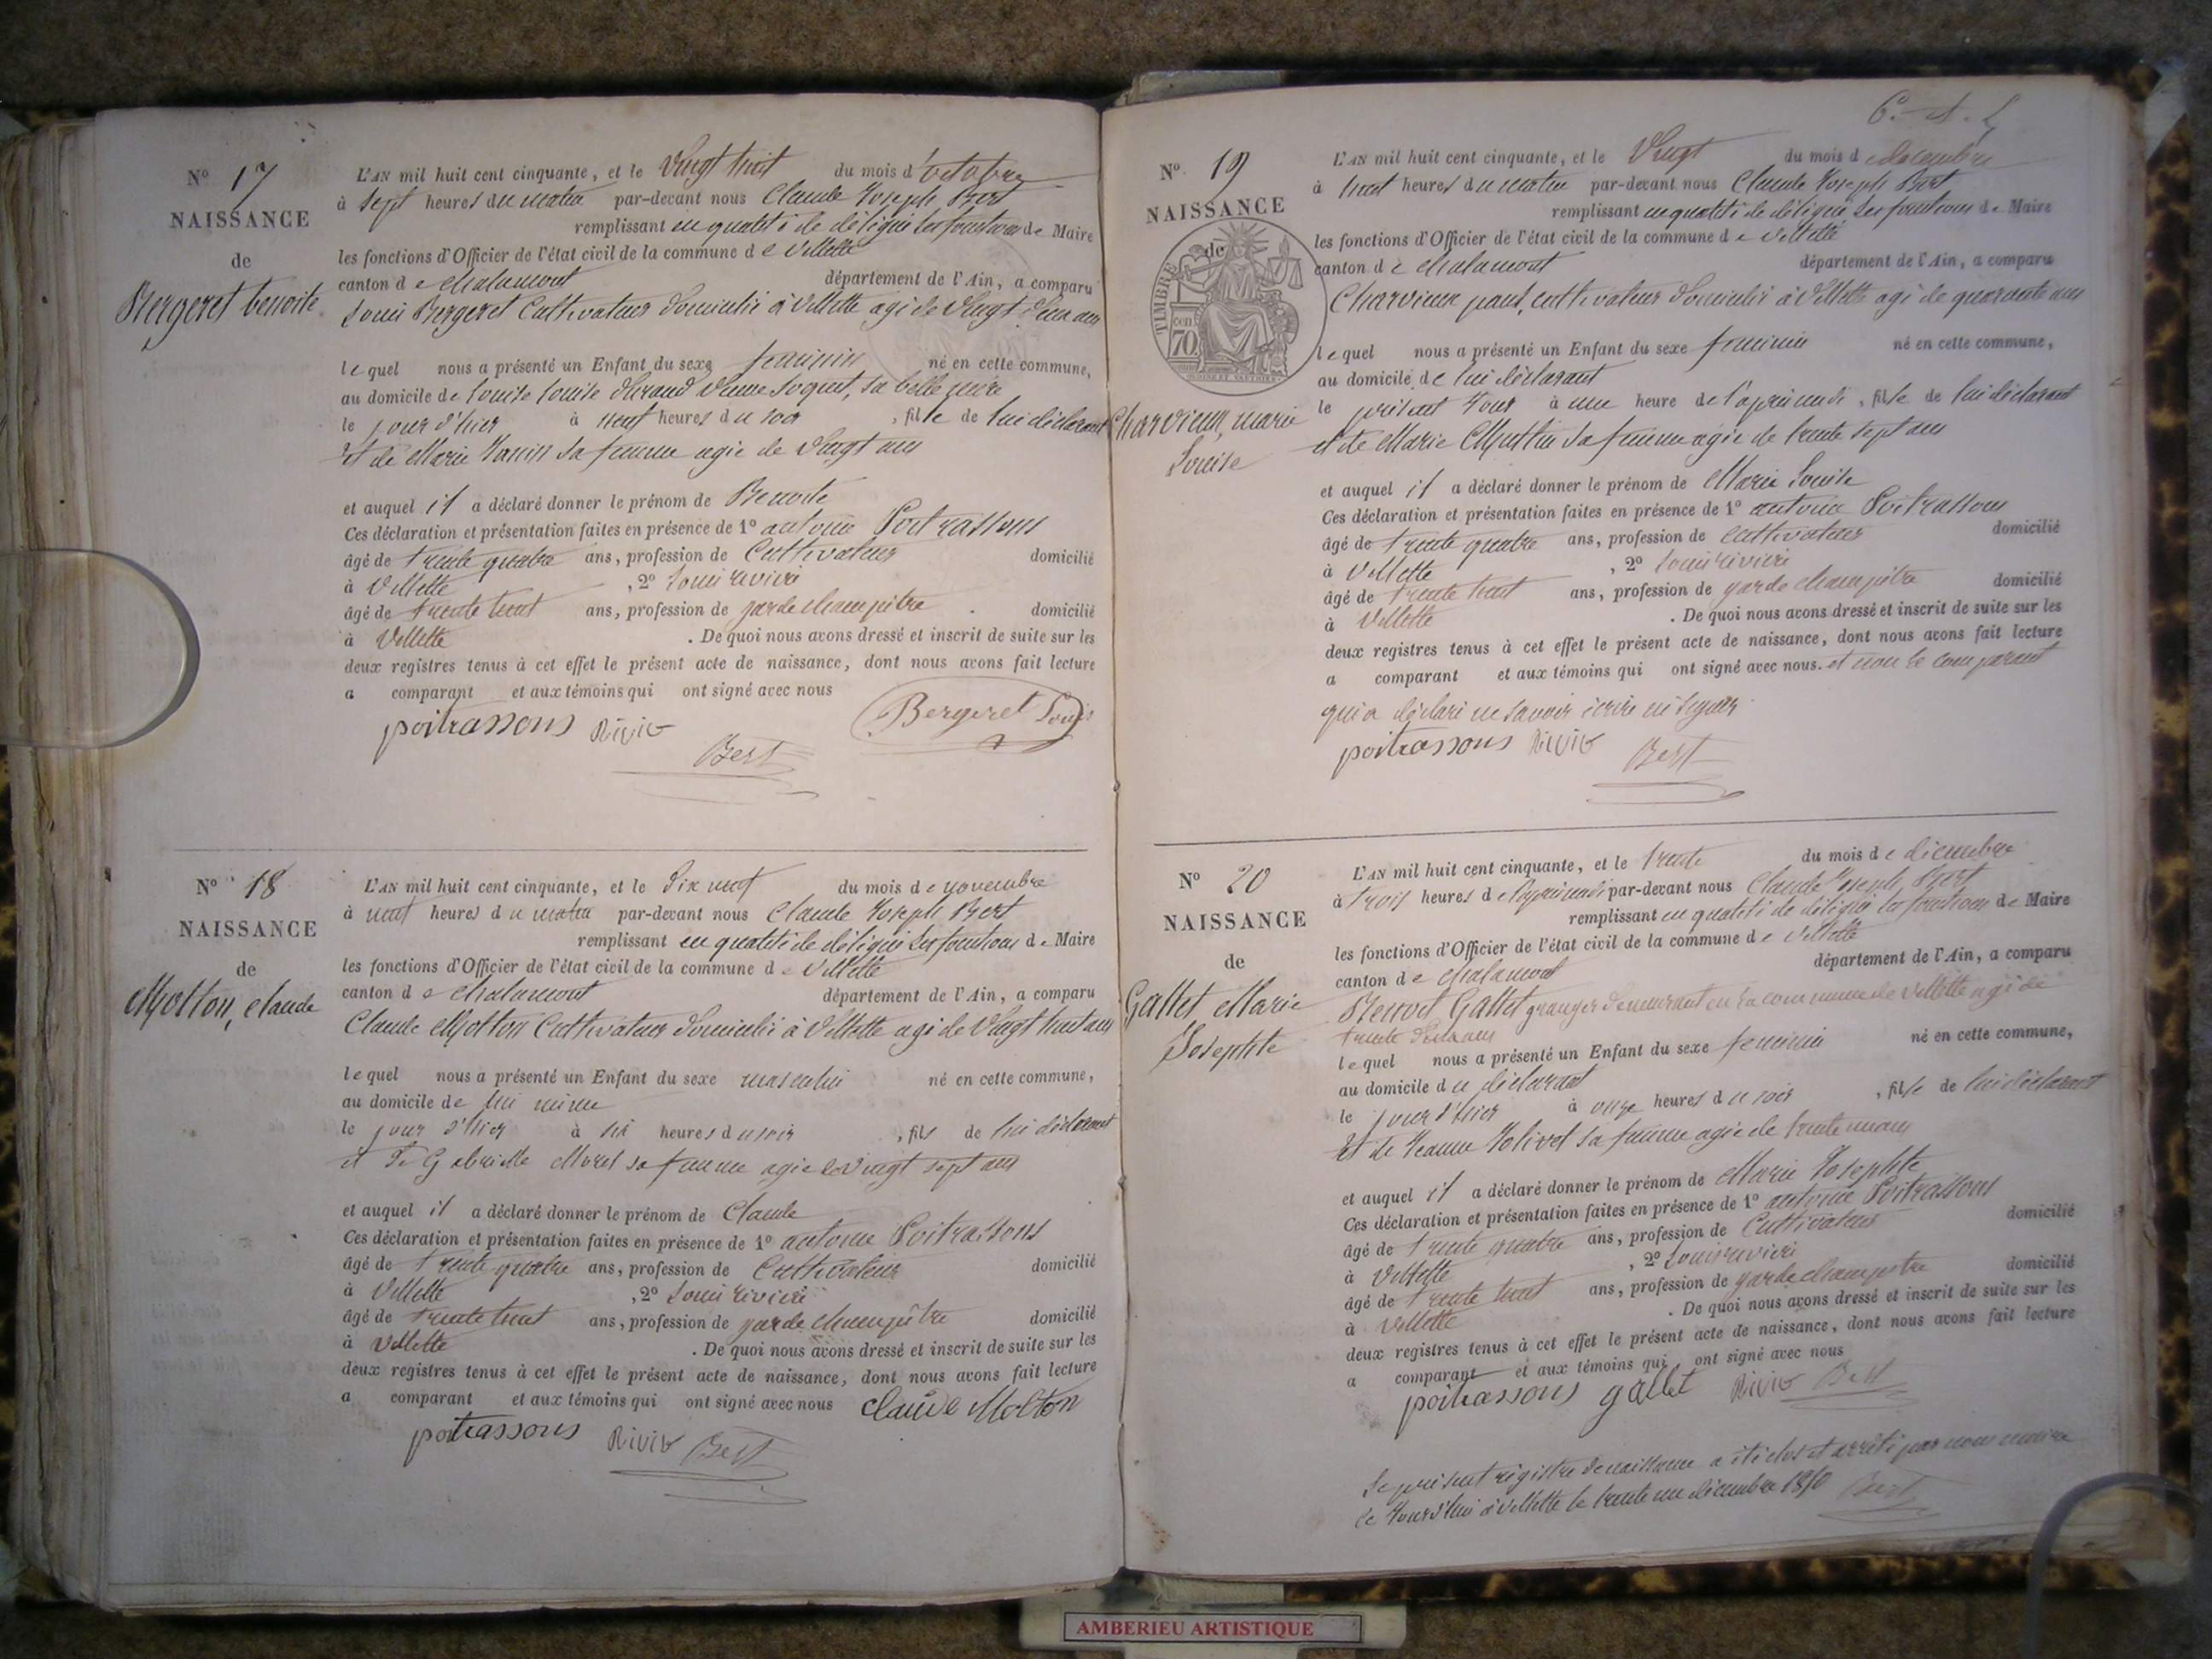 Nº 17
NAISSANCE
de
Bergeret benoite
L'AN mil huit cent cinquante, et le Vingt huit du mois d'octobre
à Sept heures du matin par-devant nous Claude Joseph Bert
remplissant en qualité de délégué les fonctions de Maire
les fonctions d'Officier de l'état civil de la commune de Villette
canton de Chalamont département de l'Ain, a comparu
Louis Bergeret Cultivateur domicilié à Villette agé de Vingt ans
lequel nous a présenté un Enfant du sexe feminin né en cette commune,
au domicile de Louise veuve Joquet, sa belle mère
le jour d'hier à neuf heures du soir , fille de lui déclarant
et de Marie sa femme agée de Vingt ans
et auquel il a déclaré donner le prénom de Benoite
Ces déclaration et présentation faites en présence de 1º antoine Poitrassons
âgé de trente quatre ans, profession de Cultivateur domicilié
à Villette , 2º Louis rivière
âgé de trente huit ans, profession de garde champêtre . domicilié
à Villette . De quoi nous avons dressé et inscrit de suite sur les
deux registres tenus à cet effet le présent acte de naissance, dont nous avons fait lecture
a comparant et aux témoins qui ont signé avec nous
poitrassons Bergeret Louis
Bert
Nº 18
NAISSANCE
de
Motton, Claude
L'AN mil huit cent cinquante, et le Dix neuf du mois de novembre
à neuf heures du matin par-devant nous Claude Joseph Bert
remplissant en qualité de délégué les fonctions de Maire
les fonctions d'Officier de l'état civil de la commune de Villette
canton de Chalamont département de l'Ain, a comparu
Claude Motton Cultivateur domicilié à Villette agé de Vingt huit ans
lequel nous a présenté un Enfant du sexe masculin né en cette commune,
au domicile de lui même
le jour d'hier à six heures du soir , fils de lui déclarant
et de Gabrielle Morel sa femme agée de vingt sept ans
et auquel il a déclaré donner le prénom de Claude
Ces déclaration et présentation faites en présence de 1º antoine Poitrassons
âgé de trente quatre ans, profession de Cultivateur domicilié
à Villette , 2º Louis rivière
âgé de trente huit ans, profession de garde champêtre domicilié
à Villette . De quoi nous avons dressé et inscrit de suite sur les
deux registres tenus à cet effet le présent acte de naissance, dont nous avons fait lecture
a comparant et aux témoins qui ont signé avec nous Claude Molton
poitrassons Bert
Nº 19
NAISSANCE
de
TIMBRE
cen
70
Charvieux, marie
Louise
L'AN mil huit cent cinquante, et le Vingt du mois de décembre
à huit heures du matin par-devant nous Claude Joseph Bert
remplissant en qualité de délégué les fonctions de Maire
les fonctions d'Officier de l'état civil de la commune de Villette
canton de Chalamont département de l'Ain, a comparu
Charvieux paul, cultivateur domicilié à Villette agé de quarante ans
lequel nous a présenté un Enfant du sexe feminin né en cette commune,
au domicile de lui déclarant
le présent jour à une heure de l'après midi , fille de lui déclarant
et de Marie sa femme agée de trente sept ans
et auquel il a déclaré donner le prénom de Marie Louise
Ces déclaration et présentation faites en présence de 1º antoine Poitrassons
âgé de trente quatre ans, profession de cultivateur domicilié
à Villette , 2º Louis rivière
âgé de trente huit ans, profession de garde champêtre domicilié
à Villette . De quoi nous avons dressé et inscrit de suite sur les
deux registres tenus à cet effet le présent acte de naissance, dont nous avons fait lecture
a comparant et aux témoins qui ont signé avec nous. et non le comparant
qui a déclaré ne savoir écrire ni signer
poitrassons Bert
Nº 20
NAISSANCE
de
Gallet Marie
Josephte
L'AN mil huit cent cinquante, et le trente du mois de décembre
à trois heures de l'après midi par-devant nous Claude Joseph Bert
remplissant en qualité de délégué les fonctions de Maire
les fonctions d'Officier de l'état civil de la commune de Villette
canton de Chalamont département de l'Ain, a comparu
Benoit Gallet granger demeurant en la commune de Villette agé de
trente ans
lequel nous a présenté un Enfant du sexe feminin né en cette commune,
au domicile du déclarant
le jour d'hier à onze heures du soir , fille de lui déclarant
et de Jeanne Jolivet sa femme agée de trente un ans
et auquel il a déclaré donner le prénom de Marie Josephte
Ces déclaration et présentation faites en présence de 1º antoine Poitrassons
âgé de trente quatre ans, profession de Cultivateur domicilié
à Villette , 2º Louis rivière
âgé de trente huit ans, profession de garde champêtre domicilié
à Villette . De quoi nous avons dressé et inscrit de suite sur les
deux registres tenus à cet effet le présent acte de naissance, dont nous avons fait lecture
a comparant et aux témoins qui ont signé avec nous
poitrassons gallet Bert
Le présent régistre de naissance a été clos et arrêté par nous maire
ce jourd'hui à Villette le trente un décembre 1850 Bert
AMBERIEU ARTISTIQUE